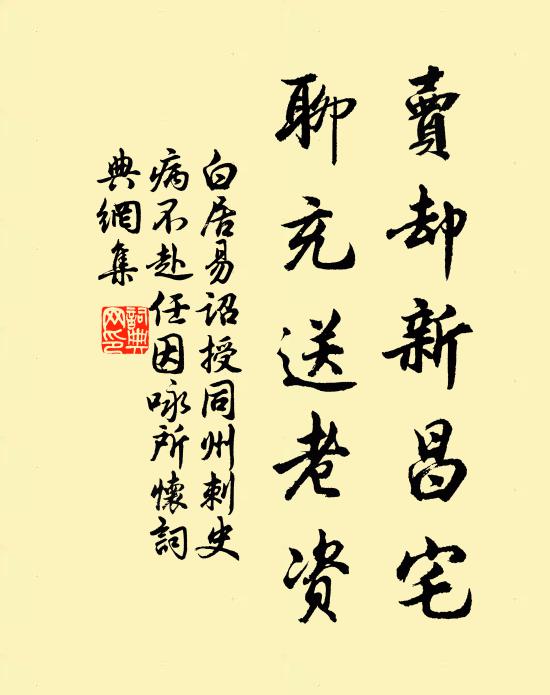 賣却新昌宅
聊充送老资
白居易诏授同州刺史
病不赴任因咏所懷詞
典網集
詞典
网印